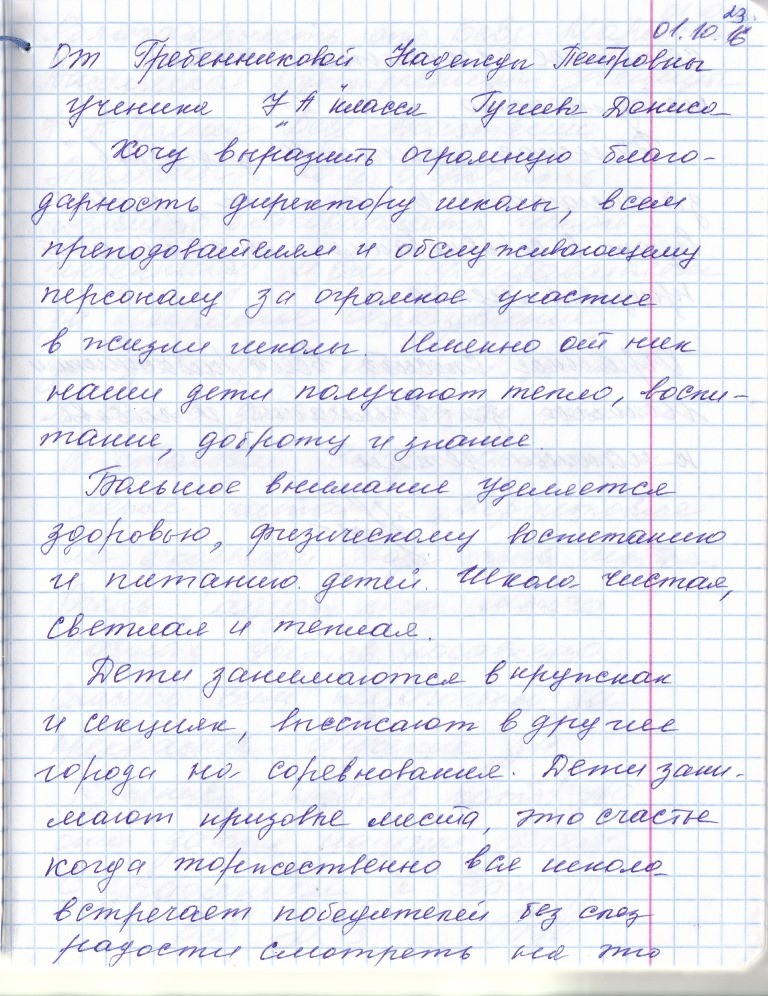 23
01.10.16
От Гребенниковой Надежды Петровны
ученика 7 "А" класса Гугиева Дениса
Хочу выразить огромную благо-
дарность директору школы, всем
преподователям и обслуживающему
персоналу за огромное участие
в жизни школы. Именно от них
наши дети получают тепло, воспи-
тание, доброту и знание.
Большое внимание уделяется
здоровью, физическому воспитанию
и питанию детей. Школа чистая,
светлая и теплая.
Дети занимаются в кружках
и секциях, выезжают в другие
города на соревнования. Дети зани-
мают призовые места, это счастье
когда торжественно вся школа
встречает победителей без слез
радости смотреть на это